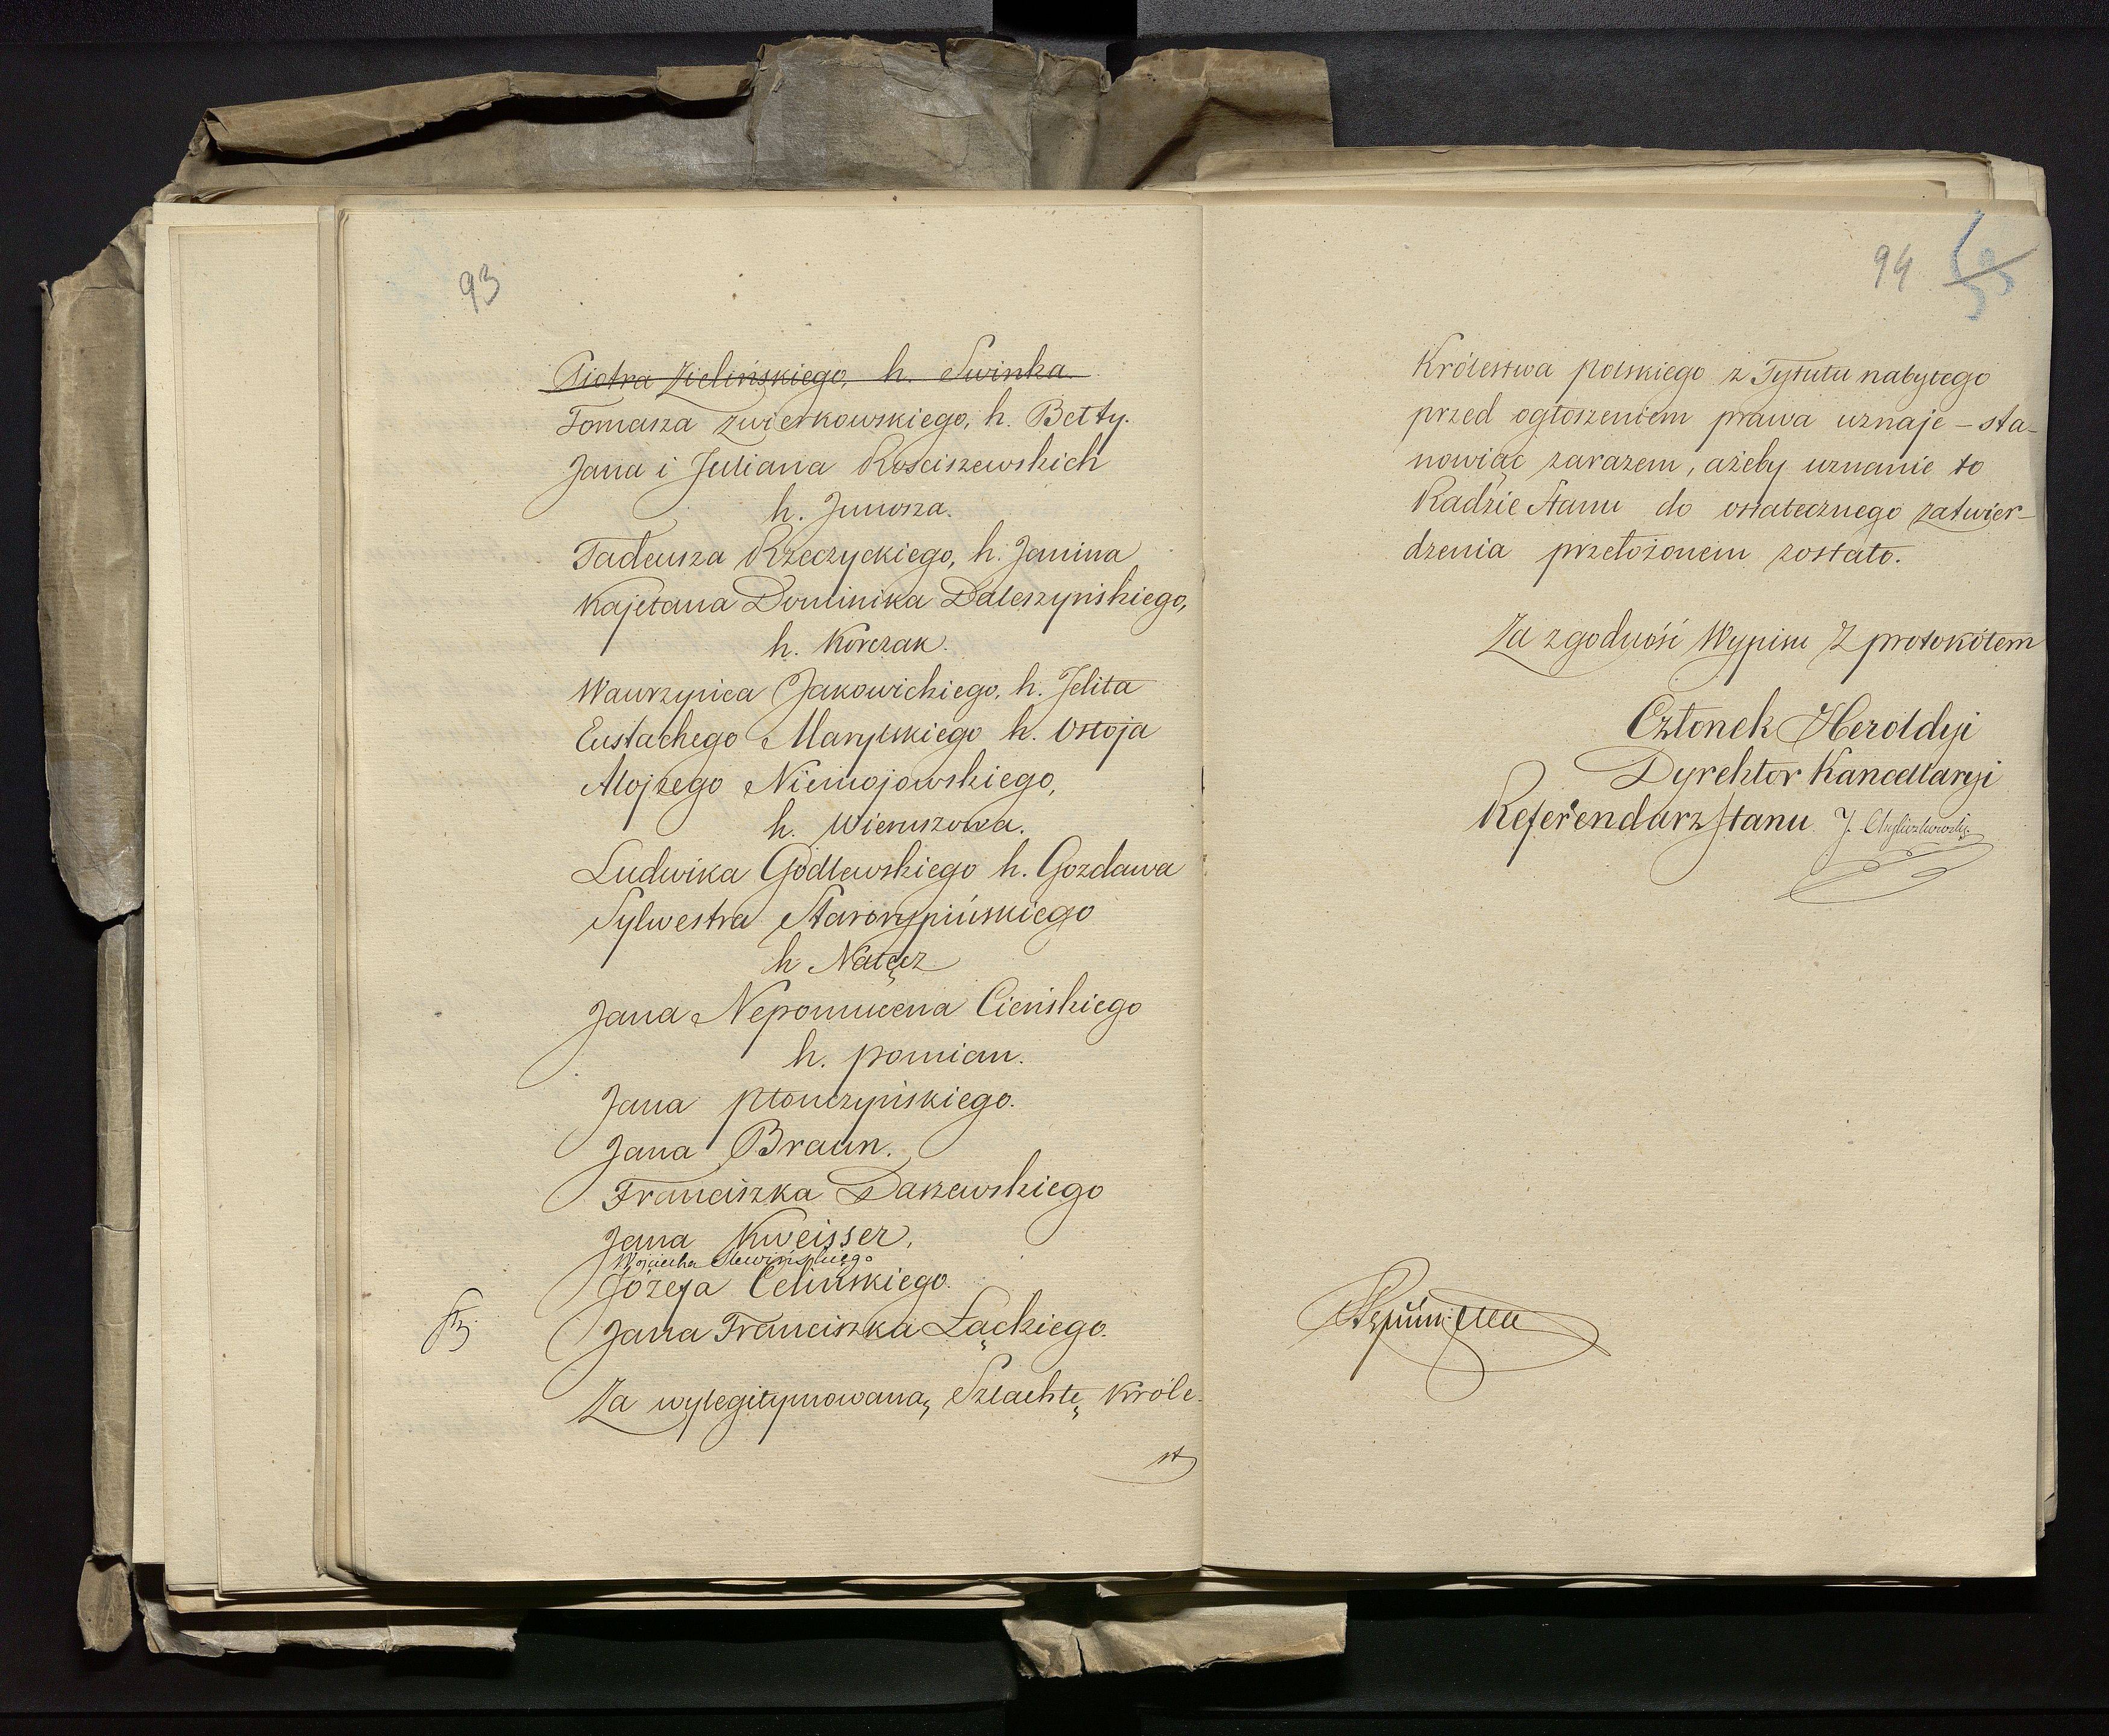 93
Piotra Zielińskiego, h. Swinka.
Tomasza Zwierkowskiego, h. Betty.
Jana i Juliana Kościszewskich
h. Junosza.
Tadeusza Rzeczyckiego, h. Janina
Kajetana Dominika Daleszyńskiego,
h. Korczak.
Wawrzyńca Jakowickiego, h. Jelita
Eustachego Marylskiego h. Ostoja
Alojzego Niemojowskiego,
h. Wieruszowa.
Ludwika Godlewskiego h. Gozdawa
Sylwestra Starorypińskiego
h Nałęcz
Jana Nepomucena Cieńskiego
h. Pomian.
Jana Płonczyńskiego.
Jana Braun.
Franciszka Daszewskiego
Jana Kweisser,
Wojciecha Slewińskiego
Józefa Celińskiego.
Jana Franciszka Łąckiego.
Za wylegitymowaną Szlachtę Króle-
st
94
Królestwa Polskiego z Tytułu nabytego
przed ogłoszeniem prawa uznaje – sta-
nowiąc zarazem, ażeby uznanie to
Radzie Stanu do ostatecznego zatwier-
dzenia przełożonem zostało.
Za zgodność Wypisu z protokółem
Członek Heroldyi
Dyrektor Kancellaryi
Referendarz Stanu J.